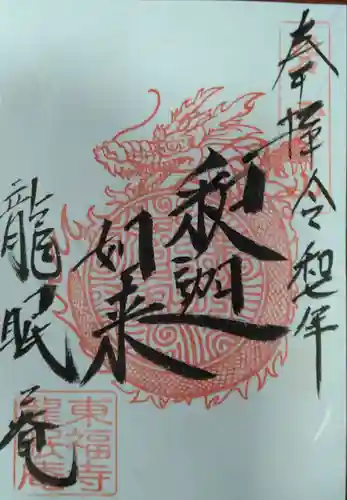 奉拝 令和 年
釈迦
如来
龍眠庵
東福寺
龍眠庵